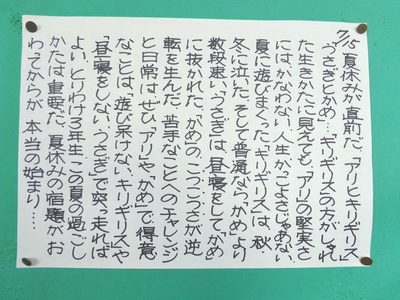 7/15 夏休みが直前だ。「アリとキリギリス」
「うさぎとかめ」…キリギリスの方がしゃれ
た生きかたに見えても、「アリ」の堅実さ
には、かなわない。人生かっこよさじゃあない。
夏に遊びまくった、「キリギリス」は、秋、
冬に泣いた。そして普通なら「かめ」より
数段速い「うさぎ」は、昼寝をして、「かめ」
に抜かれた。「かめ」のこつこつさが逆
転を生んだ。苦手なことへのチャレンジ
と日常はぜひ、「アリ」や、「かめ」で、得意
なことは、「遊び呆けない、キリギリス」や
「昼寝をしない、うさぎ」で突っ走れば
よい。とりわけ3年生、この夏の過ごし
かたは重要だ。夏休みの宿題がお
わってからが、本当の始まり……